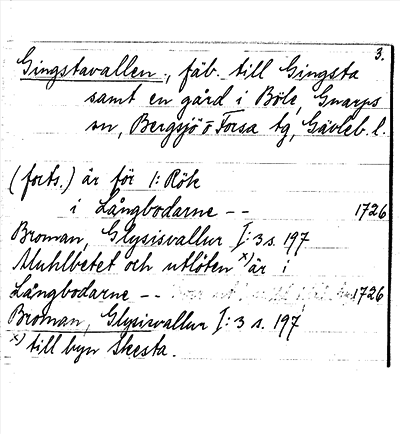 3.
Gingstavallen, fäb. till Gingsta
samt en gård i Böle, Gnarps
sn, Bergsjö o Forsa tg, Gävleb. l.
(forts.) är för 1: Rök
i Långbodarne -- 1726
Broman, Glysisvallur I: 3 s. 197
Muhlbetet och utlöten x) är i
Långbodarne -- 1726
Broman, Glysisvallur I: 3 s. 197
x) till byn Skesta.